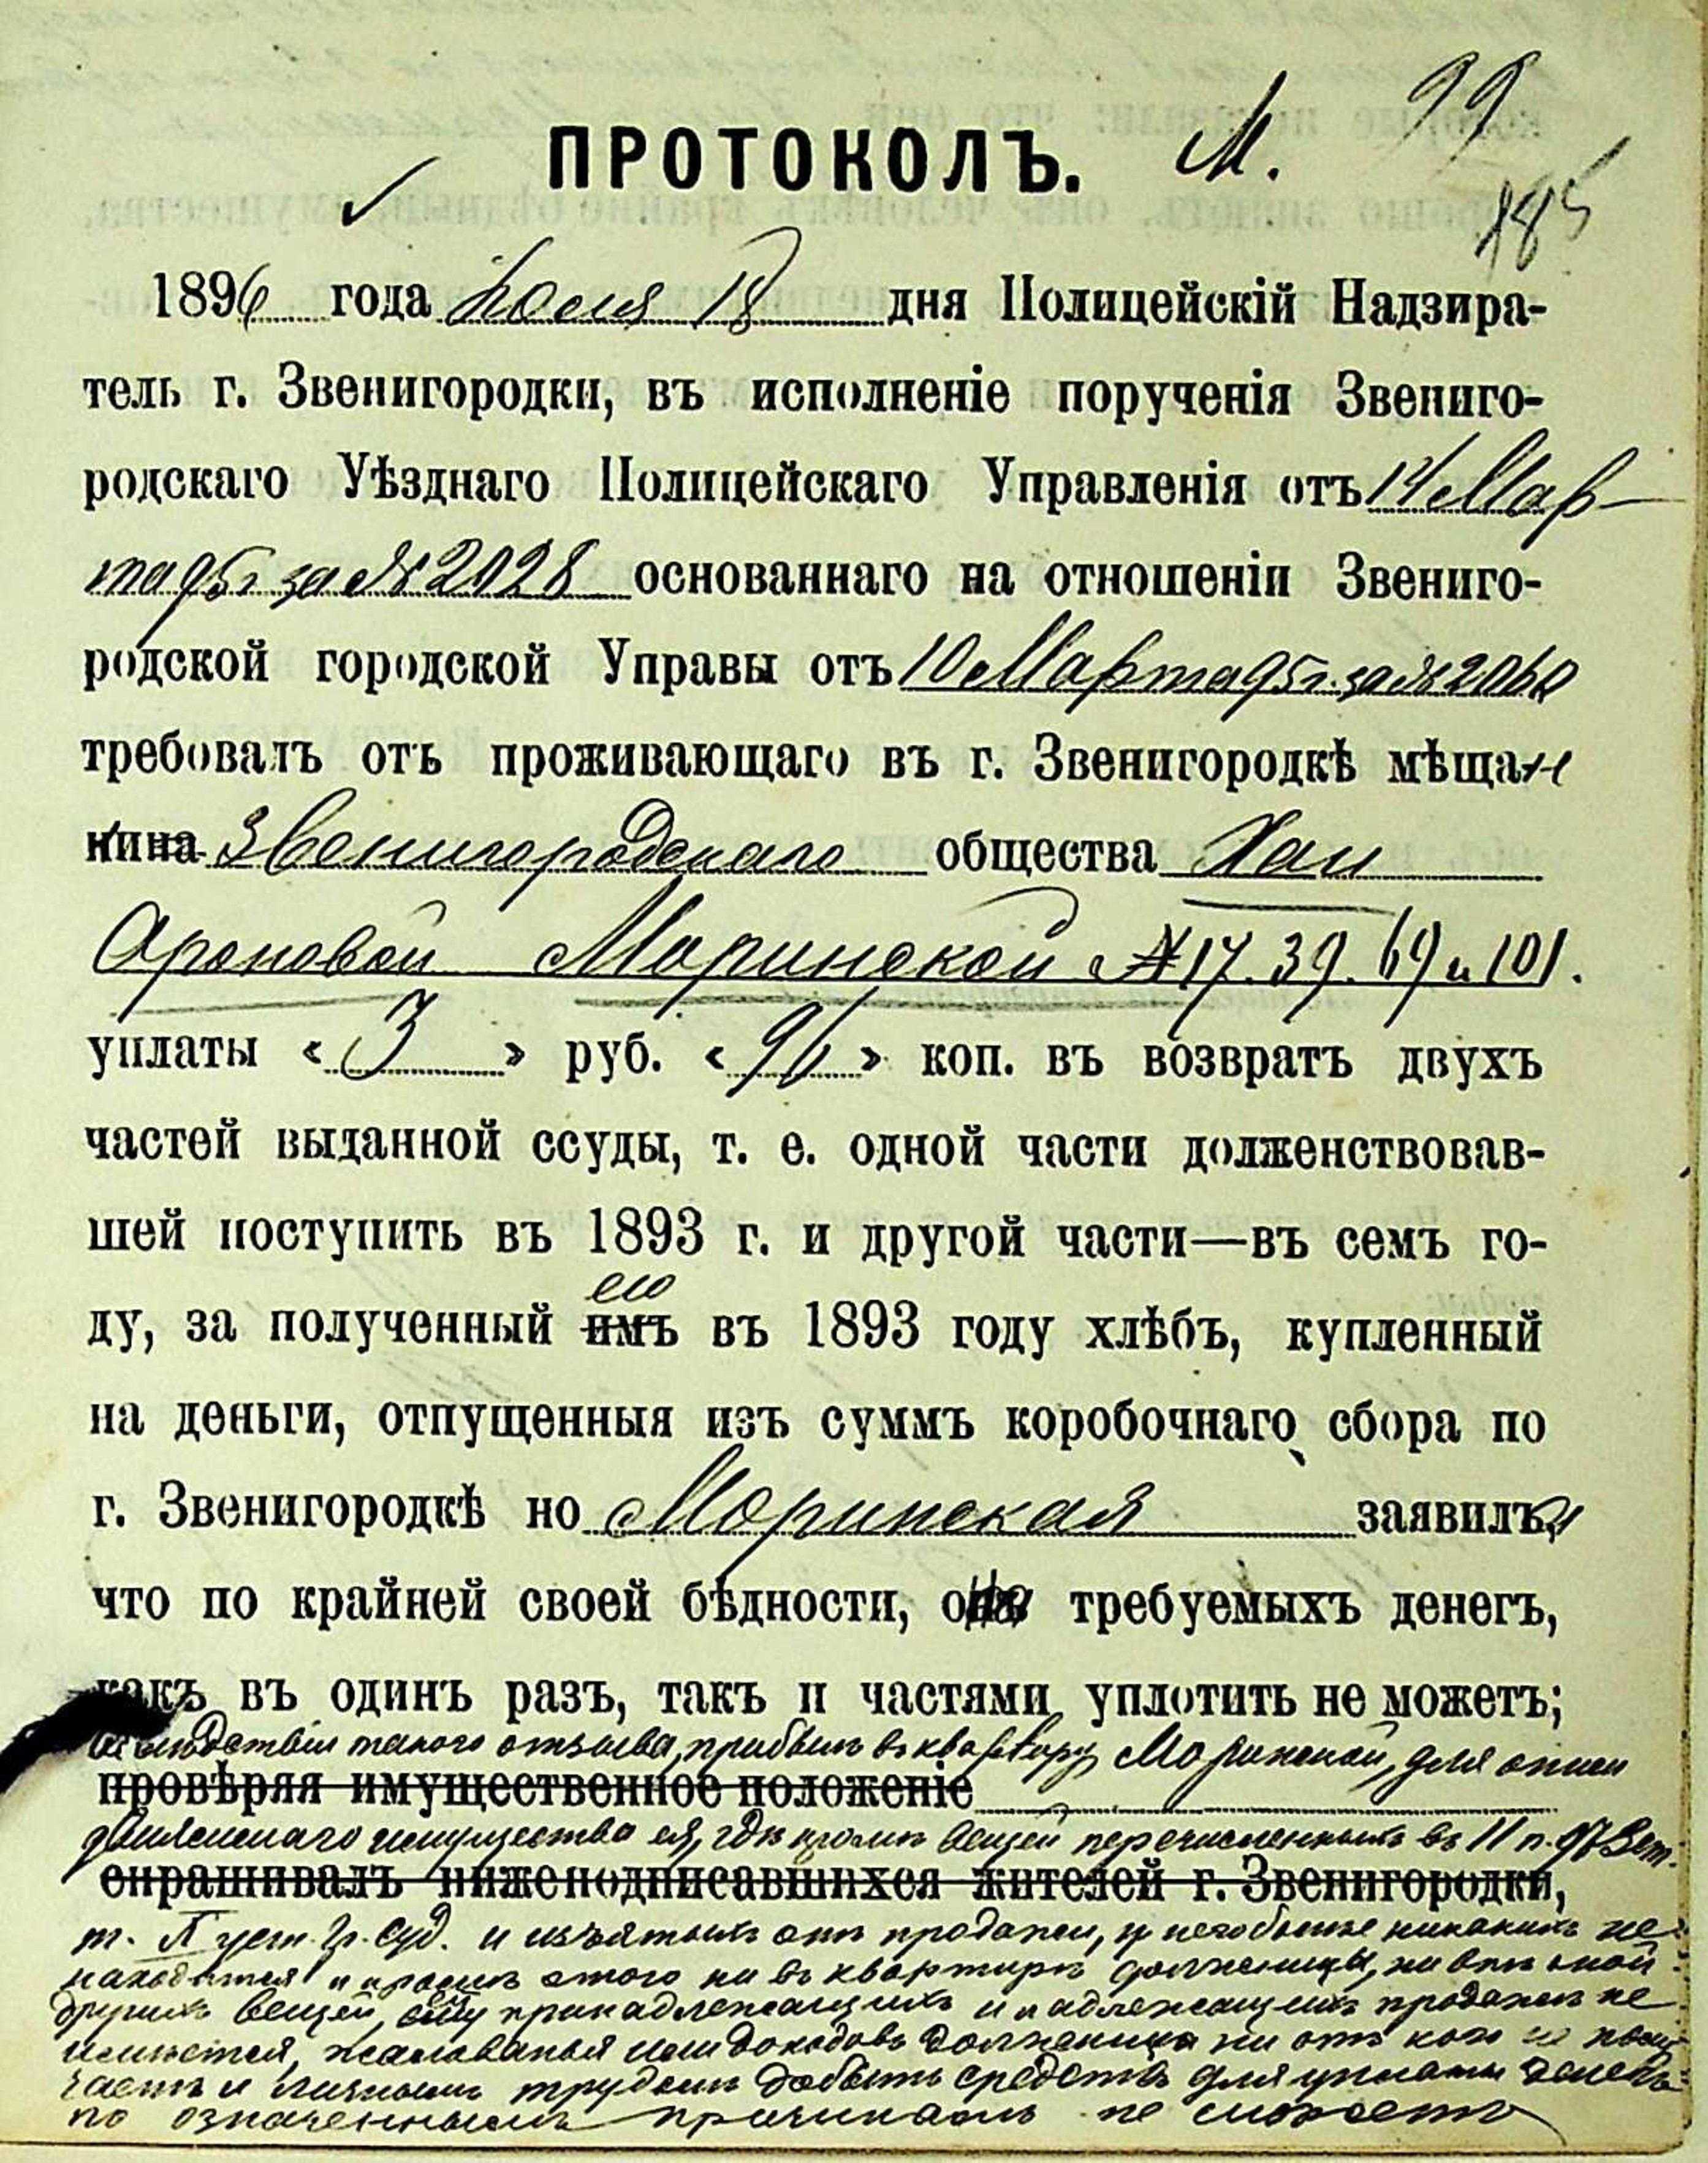 ПРОТОКОЛЪ. М. 99
185
1896 года Юня 18 дня Полицейскій Надзира-
тель г. Звенигородки, въ исполненіе порученія Звениго-
родскаго Уѣзднаго Полицейскаго Управленія отъ 14 Мар-
та 95 г за № 2028 основаннаго на отношеніи Звениго-
родской городской Управы отъ 10 Марта 95 г. за № 2060
требовалъ отъ проживающаго въ г. Звенигородкѣ мѣщан
нина Звенигородскаго общества Хаи
Ароновой Моринской № 17. 39. 69 и 101.
уплаты « 3 » руб. « 96 » коп. въ возвратъ двухъ
частей выданной ссуды, т. е. одной части долженствовав-
шей поступить въ 1893 г. и другой части—въ семъ го-
ею
ду, за полученный имъ въ 1893 году хлѣбъ, купленный
на деньги, отпущенныя изъ суммъ коробочнаго сбора по
г. Звенигородкѣ но Моринская заявила
что по крайней своей бѣдности, она требуемыхъ денегъ,
какъ въ одинъ разъ, такъ и частями уплотить не можетъ;
вслѣдствіи такого отзыва, прибылъ въ квартиру Моринской, для описи
провѣряя имущественное положеніе
движимаго имущества ея, гдѣ кромѣ вещей перечисленныхъ въ 11 п. 973 ст.
спрашивалъ нижеподписавшихся жителей г. Звенигородки,
т. уст. гр. суд. и изъятыхъ отъ продажи, никакихъ не
находится и кромѣ этого ни въ квартирѣ должницы, ни внѣ
другихъ вещей, ей принадлежащихъ и надлежащихъ продажи не
имѣется, жалованья или доходовъ должница ни отъ кого не полу-
чаетъ и личнымъ трудомъ добыть средствъ для уплаты денегъ
по означеннымъ причинамъ не можетъ